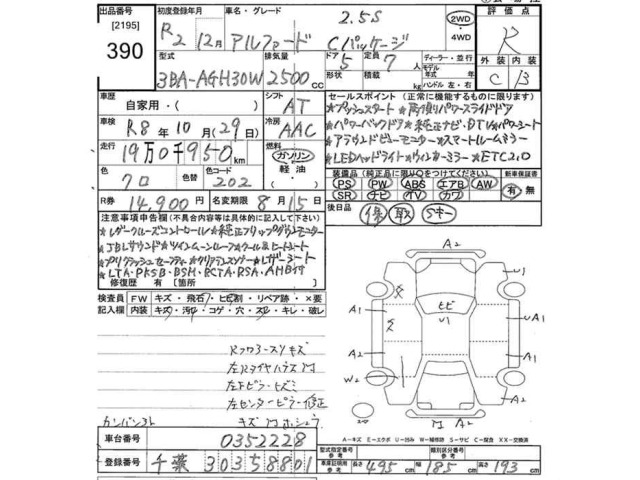 出品番号 初度登録年月 車名・グレード 評価点
[2195] 390
R2 12月 アルファード 2.5S Cパッケージ 2WD ・4WD R
型式 排気量 ドア 定員 ディーラー・並行 外装 内装
3BA-AGH30W 2500cc 5 7 C B
形状 積載 kg モデル年式 年 ハンドル 左・右
車歴 自家用・( ) シフト AT
車検 R8年 10月 (29日) 冷房 AAC
走行 19万0千950km 燃料 ガソリン 軽油 ・( )
色 クロ 色替 色コード 202
R券 14,900円 名変期限 8月15日
セールスポイント (正常に機能するものに限ります)
☆プッシュスタート ☆両側パワースライドドア
☆パワーバックドア ☆純正ナビ・DTV☆パワーシート
☆アラウンドビューモニター☆スマートルームミラー
☆LEDヘッドライト☆ウインカーミラー☆ETC2.0
装備品 (純正品に限り○をつけてください) 新車保証書
PS PW ABS エアB AW 有・無
SR ナビ TV カワ
後日品 保 取 Sキー
注意事項申告欄 (不具合内容等は具体的に記入して下さい)
☆レザークルーズコントロール☆純正フリップダウンモニター
☆JBLサウンド☆ツインムーンルーフ☆クール&ヒートシート
☆プリクラッシュセーフティ☆クリアランスソナー☆レザーシート
☆LTA・PKSB・BSM・RCTA・RSA・AHB付
修復歴 有 [箇所 ]
検査員記入欄 FW キズ・飛石・ヒビ割・リペア跡・×要
内装 キズ・汚・コゲ・穴・スレ・キレ・破レ
Rフロアースリキズ
左Rタイヤハウス凹
左Fピラーヒズミ
左センターピラー修正
キズ凹ホシュウ
カンバン3ト
A2
U1
A1
ヒビ
U1
A1
UA1
A2
A2
W2
凹 A2
A-キズ E-エクボ U-凹み W-補修跡 S-サビ C-腐食 XX-交換済
車台番号 0352228
登録番号 千葉 303 58801
型式指定番号 参考 類別区分番号 参考
車庫証明用 参考 長さ 495cm 幅 185cm 高さ 193cm